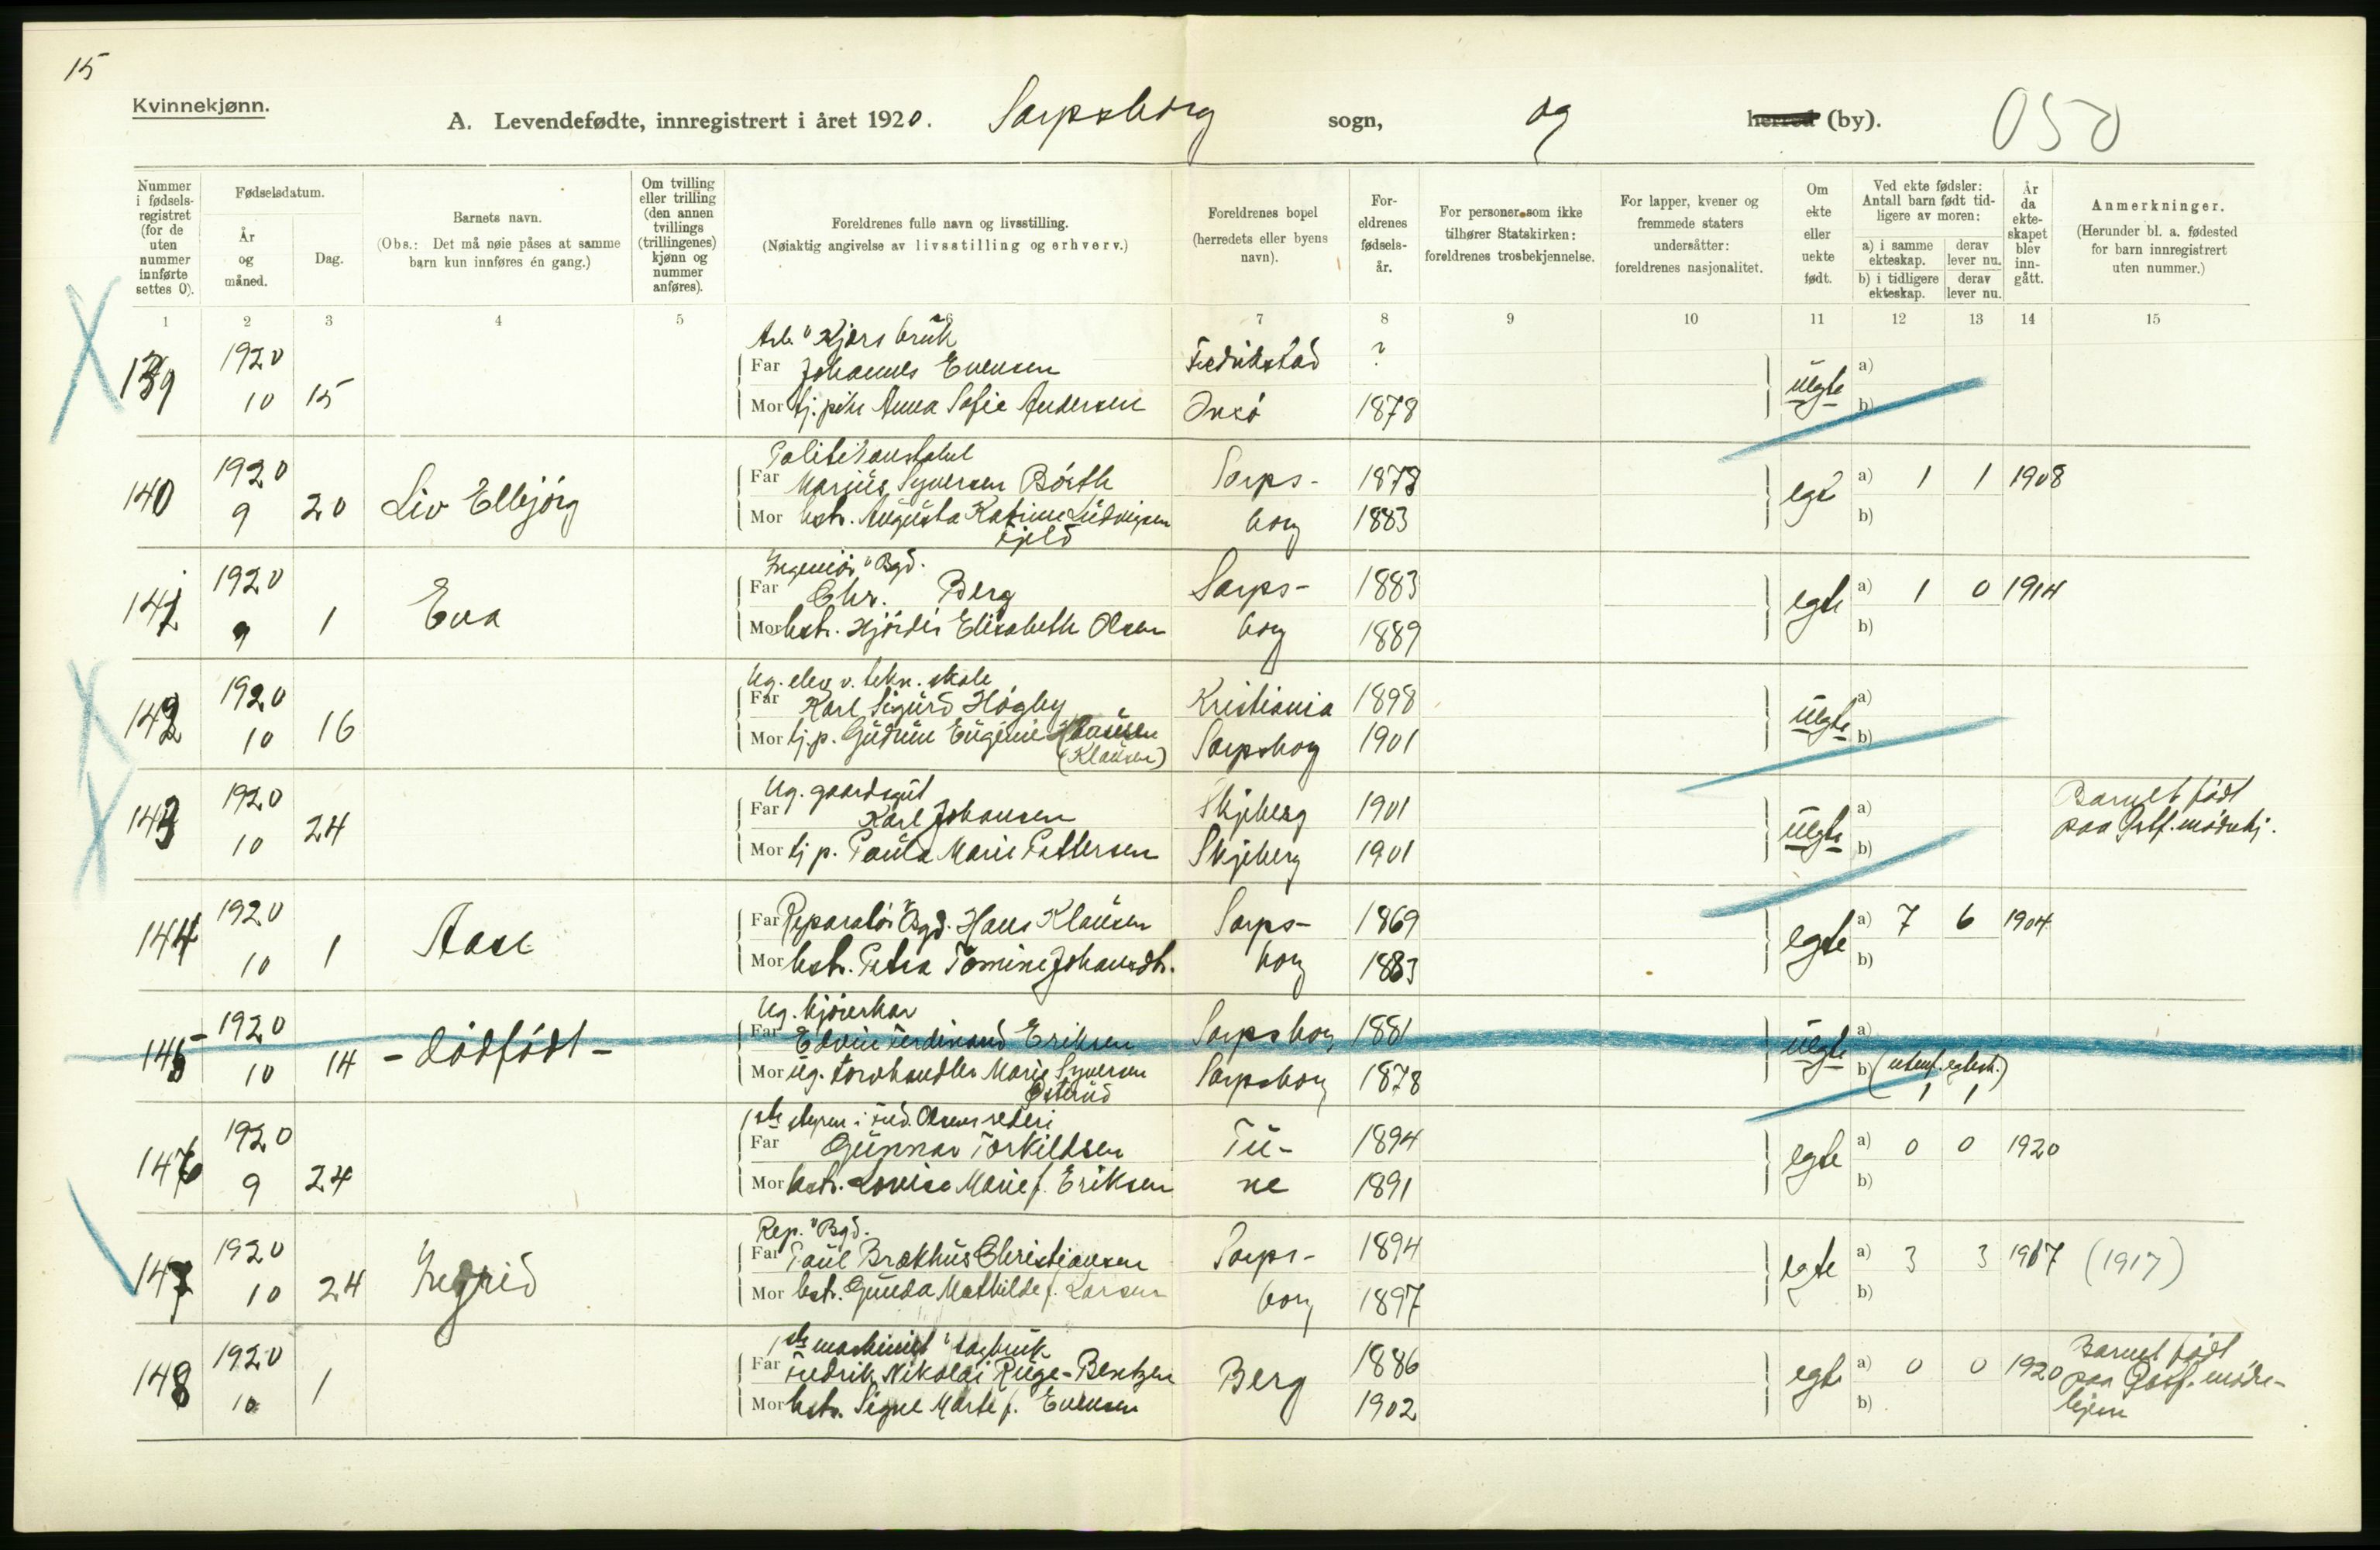 15
Kvinnekjønn.
A. Levendefødte, innregistrert i året 1920. Sarpsborg sogn, og herred (by). 050
Nummer i fødselsregistret (for de uten nummer innførte settes 0).
Fødselsdatum.
År og måned.
Dag.
Barnets navn.
(Obs.: Det må nøie påses at samme barn kun innføres én gang.)
Om tvilling eller trilling (den annen tvillings (trillingenes) kjønn og nummer anføres).
Foreldrenes fulle navn og livsstilling.
(Nøiaktig angivelse av livsstilling og erhverv.)
Foreldrenes bopel (herredets eller byens navn).
Foreldrenes fødselsår.
For personer som ikke tilhører Statskirken: foreldrenes trosbekjennelse.
For lapper, kvener og fremmede staters undersåtter: foreldrenes nasjonalitet.
Om ekte eller uekte født.
Ved ekte fødsler: Antall barn født tidligere av moren:
a) i samme ekteskap.
derav lever nu.
b) i tidligere ekteskap.
derav lever nu.
År da ekteskapet blev inngått.
Anmerkninger.
(Herunder bl. a. fødested for barn innregistrert uten nummer.)
1 2 3 4 5 6 7 8 9 10 11 12 13 14 15
Arb. v Kjærs bruk
139 1920 Far Johannes Evensen Fredrikstad ? uegte a)
10 15 Mor tj.pike Anna Sofie Andersen Onsö 1878 b)
Politikonstabel
140 1920 Far Marius Syversen Börth Sarps- 1878 egte a) 1 1 1908
9 20 Liv Elbjörg Mor hstr. Augusta Katrine Ludvigsen borg 1883 b)
Kjeld
Ingeniör v Bgd.
141 1920 Far Chr. Berg Sarps- 1883 egte a) 1 0 1914
9 1 Eva Mor hstr. Hjördis Elisabeth Olsen borg 1889 b)
Ug. elev v. tekn. skole
142 1920 Far Karl Sigurd Högby Kristiania 1898 uegte a)
10 16 Mor tj.p. Gudrun Eugenie Clausen Sarpsborg 1901 b)
(Klausen)
Ug. gaardsgut
143 1920 Far Karl Johansen Skjeberg 1901 uegte a) Barnet födt
10 24 Mor tj p. Paula Marie Pettersen Skjeberg 1901 b) paa Östf. mödrehj.
144 1920 Far Reparatör v Bgd. Hans Klausen Sarps- 1869 egte a) 7 6 1904
10 1 Aase Mor hstr. Petra Tomine Johansdtr. borg 1883 b)
Ug. kjörekar
145 1920 Far Edvin Ferdinand Eriksen Sarpsborg 1881 uegte a)
10 14 - dödfödt - Mor ug. torvhandler Marie Syversen Sarpsborg 1878 b) (utenf. egtesk.)
Österud 1 1
1ste styrm i Fred. Olsens rederi
146 1920 Far Gunnar Torkildsen Tu- 1894 egte a) 0 0 1920
9 24 Mor hstr. Lovise Marie f. Eriksen ne 1891 b)
Rep. v Bgd.
147 1920 Far Paul Brækhus Christiansen Sarps- 1894 egte a) 3 3 1917 (1917)
10 24 Ingrid Mor hstr. Gunda Mathilde f. Larsen borg 1897 b)
1ste maskinist v sagbruk
148 1920 Far Fredrik Nikolai Ruge-Bentzen Berg 1886 egte a) 0 0 1920 Barnet födt
10 1 Mor hstr. Signe Marte f. Evensen 1902 b) paa Östf. mödre-
hjem